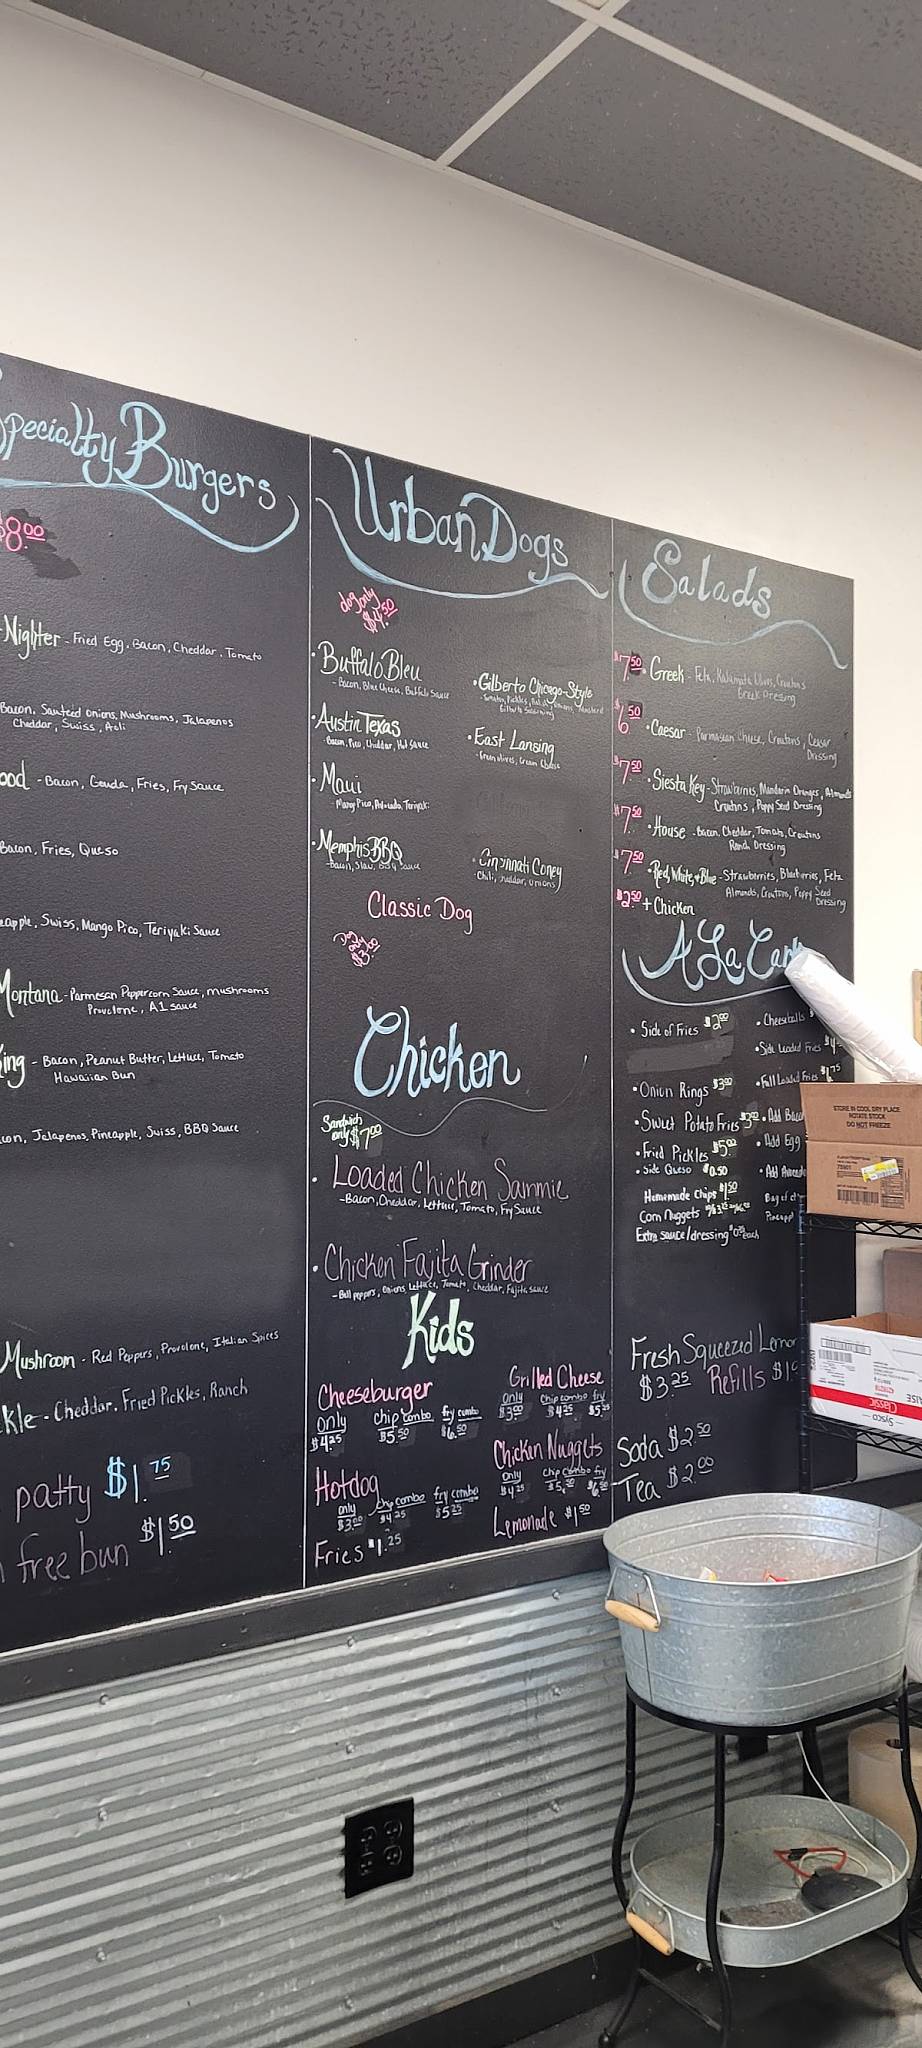 Specialty Burgers
$8.00
Nighter - Fried Egg, Bacon, Cheddar, Tomato
Bacon, Sauteed Onions, Mushrooms, Jalapenos
Cheddar, Swiss, Aoli
ood - Bacon, Gouda, Fries, Fry Sauce
Bacon, Fries, Queso
eapple, Swiss, Mango Pico, Teriyaki Sauce
Montana - Parmesan Peppercorn Sauce, mushrooms
Provolone, A1 sauce
ing - Bacon, Peanut Butter, Lettuce, Tomato
Hawaiian Bun
con, Jalapenos, Pineapple, Swiss, BBQ Sauce
Mushroom - Red Peppers, Provolone, Italian Spices
kle - Cheddar, Fried Pickles, Ranch
patty $1.75
free bun $1.50
Urban Dogs
dog only
$4.50
Buffalo Bleu
- Bacon, Blue Cheese, Buffalo Sauce
Austin Texas
- Bacon, Pico, Cheddar, Hot Sauce
Maui
- Mango Pico, Avocado, Teriyaki
Memphis BBQ
- Bacon, Slaw, BBQ Sauce
Gilberto Chicago-Style
East Lansing
- Green olives, Cream Cheese
Cincinnati Coney
- Chili, cheddar, onions
Classic Dog
Dog only
$3.00
Chicken
Sandwich
only $7.00
Loaded Chicken Sammie
- Bacon, Cheddar, Lettuce, Tomato, Fry Sauce
Chicken Fajita Grinder
- Bell peppers, onions, Lettuce, Tomato, Cheddar, Fajita sauce
Kids
Cheeseburger
only chip combo fry combo
$4.25 $5.50 $6.50
Grilled Cheese
only chip combo fry
$3.00 $4.25 $5.25
Hotdog
only chip combo fry combo
$3.00 $4.25 $5.25
Chicken Nuggets
only chip combo fry
$4.25 $5.50 $6.50
Fries $1.25
Lemonade $1.50
Salads
$7.50 Greek - Feta, Kalamata Olives, Croutons
Greek Dressing
$6.50 Caesar - Parmesan Cheese, Croutons, Ceasar
Dressing
$7.50 Siesta Key - Strawberries, Mandarin Oranges, Almonds
Croutons, Poppy Seed Dressing
$7.50 House - Bacon, Cheddar, Tomato, Croutons
Ranch Dressing
$7.50 Red, White, + Blue - Strawberries, Blueberries, Feta
Almonds, Croutons, Poppy Seed
Dressing
$2.50 + Chicken
A La Cart
Side of Fries $2.00
Onion Rings $3.00
Sweet Potato Fries $3.00
Fried Pickles $5.00
Side Queso $0.50
Homemade Chips $1.50
Corn Nuggets
Extra sauce/dressing each
Cheeseballs $
Side Loaded Fries
Full Loaded Fries
Add Baco
Add Egg
Add Avocado
Bag of ch
Pineappl
Fresh Squeezed Lemon
$3.25 Refills $1.
Soda $2.50
Tea $2.00
STORE IN COOL DRY PLACE
ROTATE STOCK
DO NOT FREEZE
75901
Classic
Sysco